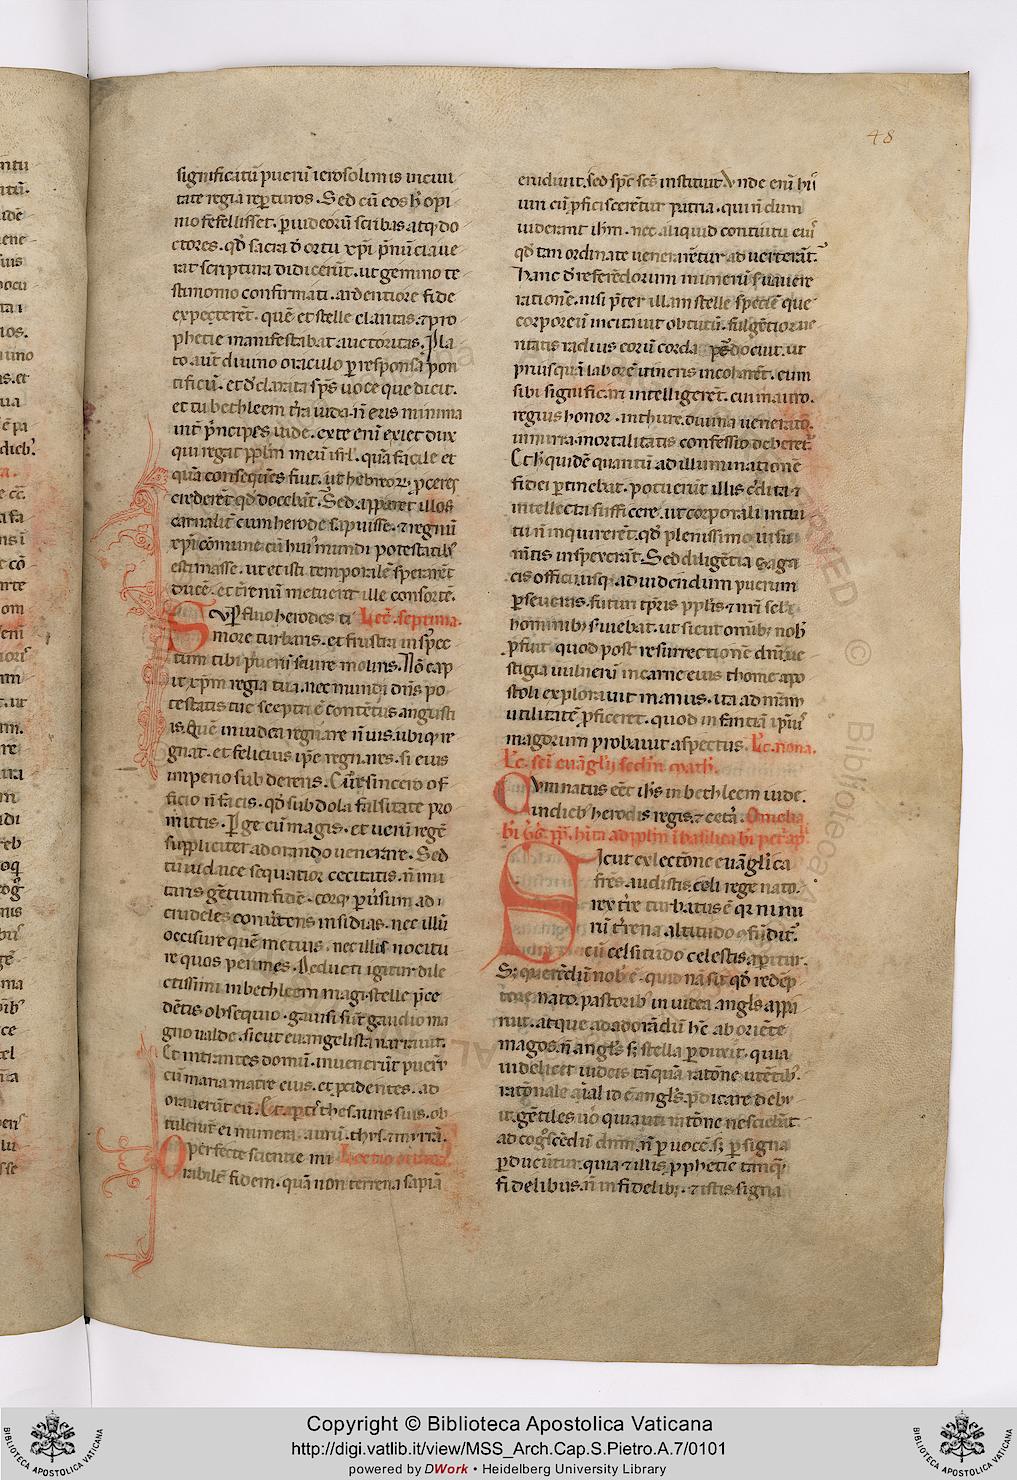 48
significatū puerū ierosolimis in ciui
tate regia reꝑturos. Sed cū eos h̄ opi
nio fefellisset. ꝑ iudeorū scribas atq; do
ctores. qd̄ sacra d̄ ortu xp̄i p̄nūciaue
rat scriptura didicerūt. ut gemino te
stimonio confirmati. ardentiore fide
expecterēt. quē et stelle claritas. ⁊ pro
phetie manifestabat auctoritas. Pla
to aut̄ diuino oraculo ꝑ responsa pon
tificū. et d̄clarata sp̄s uoce que dicit.
et tu bethleem t̄ra iuda. n̄ eris minima
int̄ p̄ncipes iude. ex te enī exiet dux
qui regat pp̄lm meū isrl̄. quā facile et
quā consequēs fuit. ut hebreoꝝ ꝓceres
crederēt qd̄ docebāt. Sed apparet illos
carnalit̄ cum herode sapuisse. ⁊ regnū
xp̄i cōmune cū hui᾿ mundi potestatib᾿
estimasse. ut et isti temporalē sperarēt
ducē. et t̄renū metueret ille consortē.
Suꝑfluo herodes ti Lect̄. septima.
more turbaris. et frustra in suspec
tum tibi puerū seuire moliris. Nō cap
it xp̄m regia tua. nec mundi dn̄s po
testatis tue sceptri ē contētus angusti
is. Quē in iudea regnare n̄ uis. ubiq; re
gnat. et felicius ip̄e regnares. si eius
imperio subderēris. Cur sincero of
ficio n̄ facis. qd̄ subdola falsitate pro
mittis. Perge cū magis. et uerū regē
suppliciter adorando uenerare. Sed
tu iudaice sequatior cecitatis. n̄ imi
taris gētium fidē. corq; ꝑuersum ad
crudeles conuertens insidias. nec illū
occisure quē metuis. nec illis nocitu
re quos perimes. Aeducti igitur dile
ctissimi in bethleem magi. stelle p̄ce
dētis obsequio. gauisi sūt gaudio ma
gno ualde. sicut euangelista narrauit.
Et intrantes domū. inuenerūt puerū
cū maria matre eius. et ꝓcidentes. ad
orauerūt eū. Et apertis thesauris suis. ob
tulerūt ei munera. aurū. thus. ⁊ mirrā.
O perfecte scientie mi Lectio octaua.
rabilē fidem. quā non terrena sapiā
erudiuit. sed sp̄c sc̄s instituit. Vnde enī hii
uiri cū ꝓficiscerētur patria. qui n̄dum
uiderant ihm̄. nec aliquid contuitu ei᾿
qd̄ tam ordinate ueneraretur aduerterāt.
hanc d̄ referēdorum munerū seruauere
rationē. nisi p̄ter illam stelle speciē que
corporeū incitauit obtutū. fulgētior ue
ritatis radius eorū corda perdocuit. ut
priusquā laborē itineris incoharēt. eum
sibi significari intelligerēt. cui in auro.
regius honor. in thure. diuina ueneratio.
in mirra. mortalitatis confessio deberet᾿.
Et h̄ quidē quantū ad illuminationē
fidei ꝑtinebat. potuerūt illis c̄dita ⁊
intellecta sufficere. ut corporali intui
tu n̄ inquirerēt. qd̄ plenissimo uisu
mētis inspexerāt. Sed diligētia saga
cis officii usq; ad uidendum puerum
ꝑseuerās. futuri tp̄ris pp̄lis. ⁊ nr̄i secl̄i
hominib; seruiebat. ut sicut omīb; nob᾿
ꝓfuit. quod post resurrectionē dn̄i ue
stigia uulnerū in carne eius thome apo
stoli explorauit manus. ita ad nr̄am
utilitatē ꝓficeret. quod infantiā ip̄ius
magorum probauit aspectus. Lc̄. nona.
Lc̄. sc̄i euāgl̄ii sec̄dm math̄.
Cum natus eēt ihs̄ in bethleem iude.
in dieb᾿ herodis regis. ⁊ cetā. Omelia
bi᾿ Gg̅. pp̄. hita ad pp̄lm ī basilica bi᾿ petri apl̄i.
Sicut ex lectōne euāgl̄ica
fr̄es audistis. celi rege nato.
rex t̄re turbatus ē. qr nimi
rū t̄rena altitudo ꝯfūdit᾿.
cū celsitudo celestis aꝑitur.
S; querēdū nob̄ ē. quidnā sit qd̄ redēp
tore nato. pastorib᾿ in iudea angl̄s appa
ruit. atque ad adorādū hc̄ ab oriēte
magos. n̄ angl̄s s; stella ꝑduxit. quia
uidelicet iudeis tāquā ratōne utētib᾿.
ratōnale aīal id ē angl̄s. p̄dicare debu
it. gētiles uō quia uti ratōne nesciebāt
ad cog̅scēdū dn̄m. n̄ ꝑ uocē. s; ꝑ signa
ꝑducūtur. quia ⁊ illis ꝓphetie tanq̄
fidelibus. n̄ infidelib;. ⁊ istis signa
Copyright © Biblioteca Apostolica Vaticana
http://digi.vatlib.it/view/MSS_Arch.Cap.S.Pietro.A.7/0101
powered by DWork • Heidelberg University Library
BIBLIOTECA APOSTOLICA VATICANA
BIBLIOTECA APOSTOLICA VATICANA